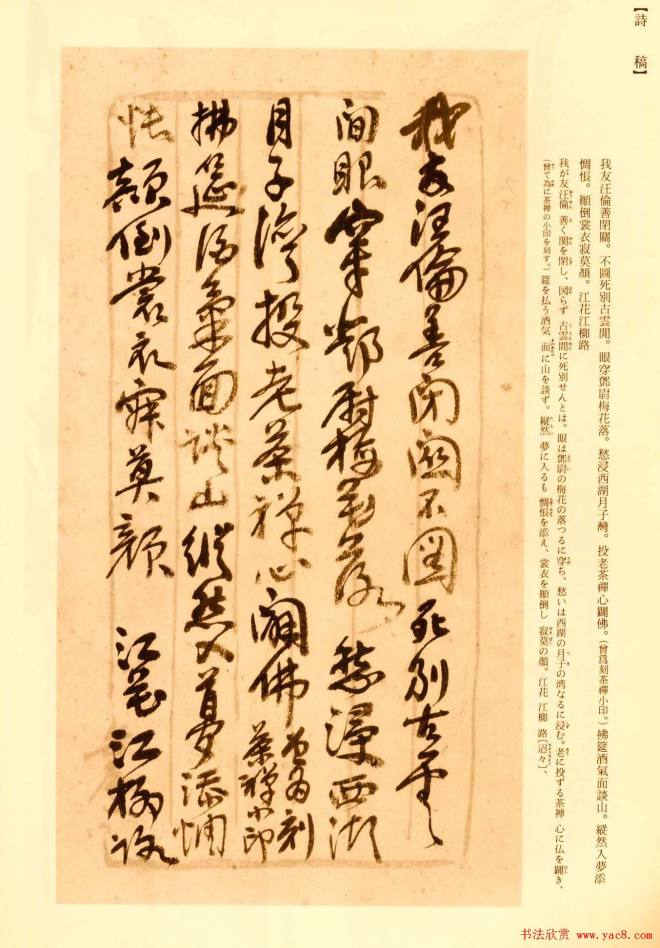 【詩 稿】
我友汪倫善閉關。不圖死別古雲閒。眼穿鄧尉梅花落。愁浸西湖月子灣。投老茶禪心闢佛。(曾爲刻茶禪小印。)拂筵酒氣面談山。縱然入夢添
惆悵。顚倒裳衣寂莫顏。江花江柳路
我が友汪倫 善く関を閉し、図らず 古雲間に死別せんとは。眼は鄧尉の梅花の落つるに穿ち、愁いは西湖の月子の湾なるに浸む。老に投ずる茶禅 心に仏を闢き、
(曾て為に茶禅の小印を刻す。)筵を払う酒気 面に山を談ず。縦然 夢に入るも 惆悵を添え、裳衣を顚倒し 寂莫の顔。江花 江柳 路〔迢々〕、
我友汪倫善閉關不圖死別古雲
間眼穿鄧尉梅花落 愁浸西湖
月子灣投老茶禪心闢佛 曾為刻
茶禪小印
拂筵酒氣面談山縱然入夢添惆
悵顛倒裳衣寂莫顏 江花江柳路
书法欣赏 www.yac8.com